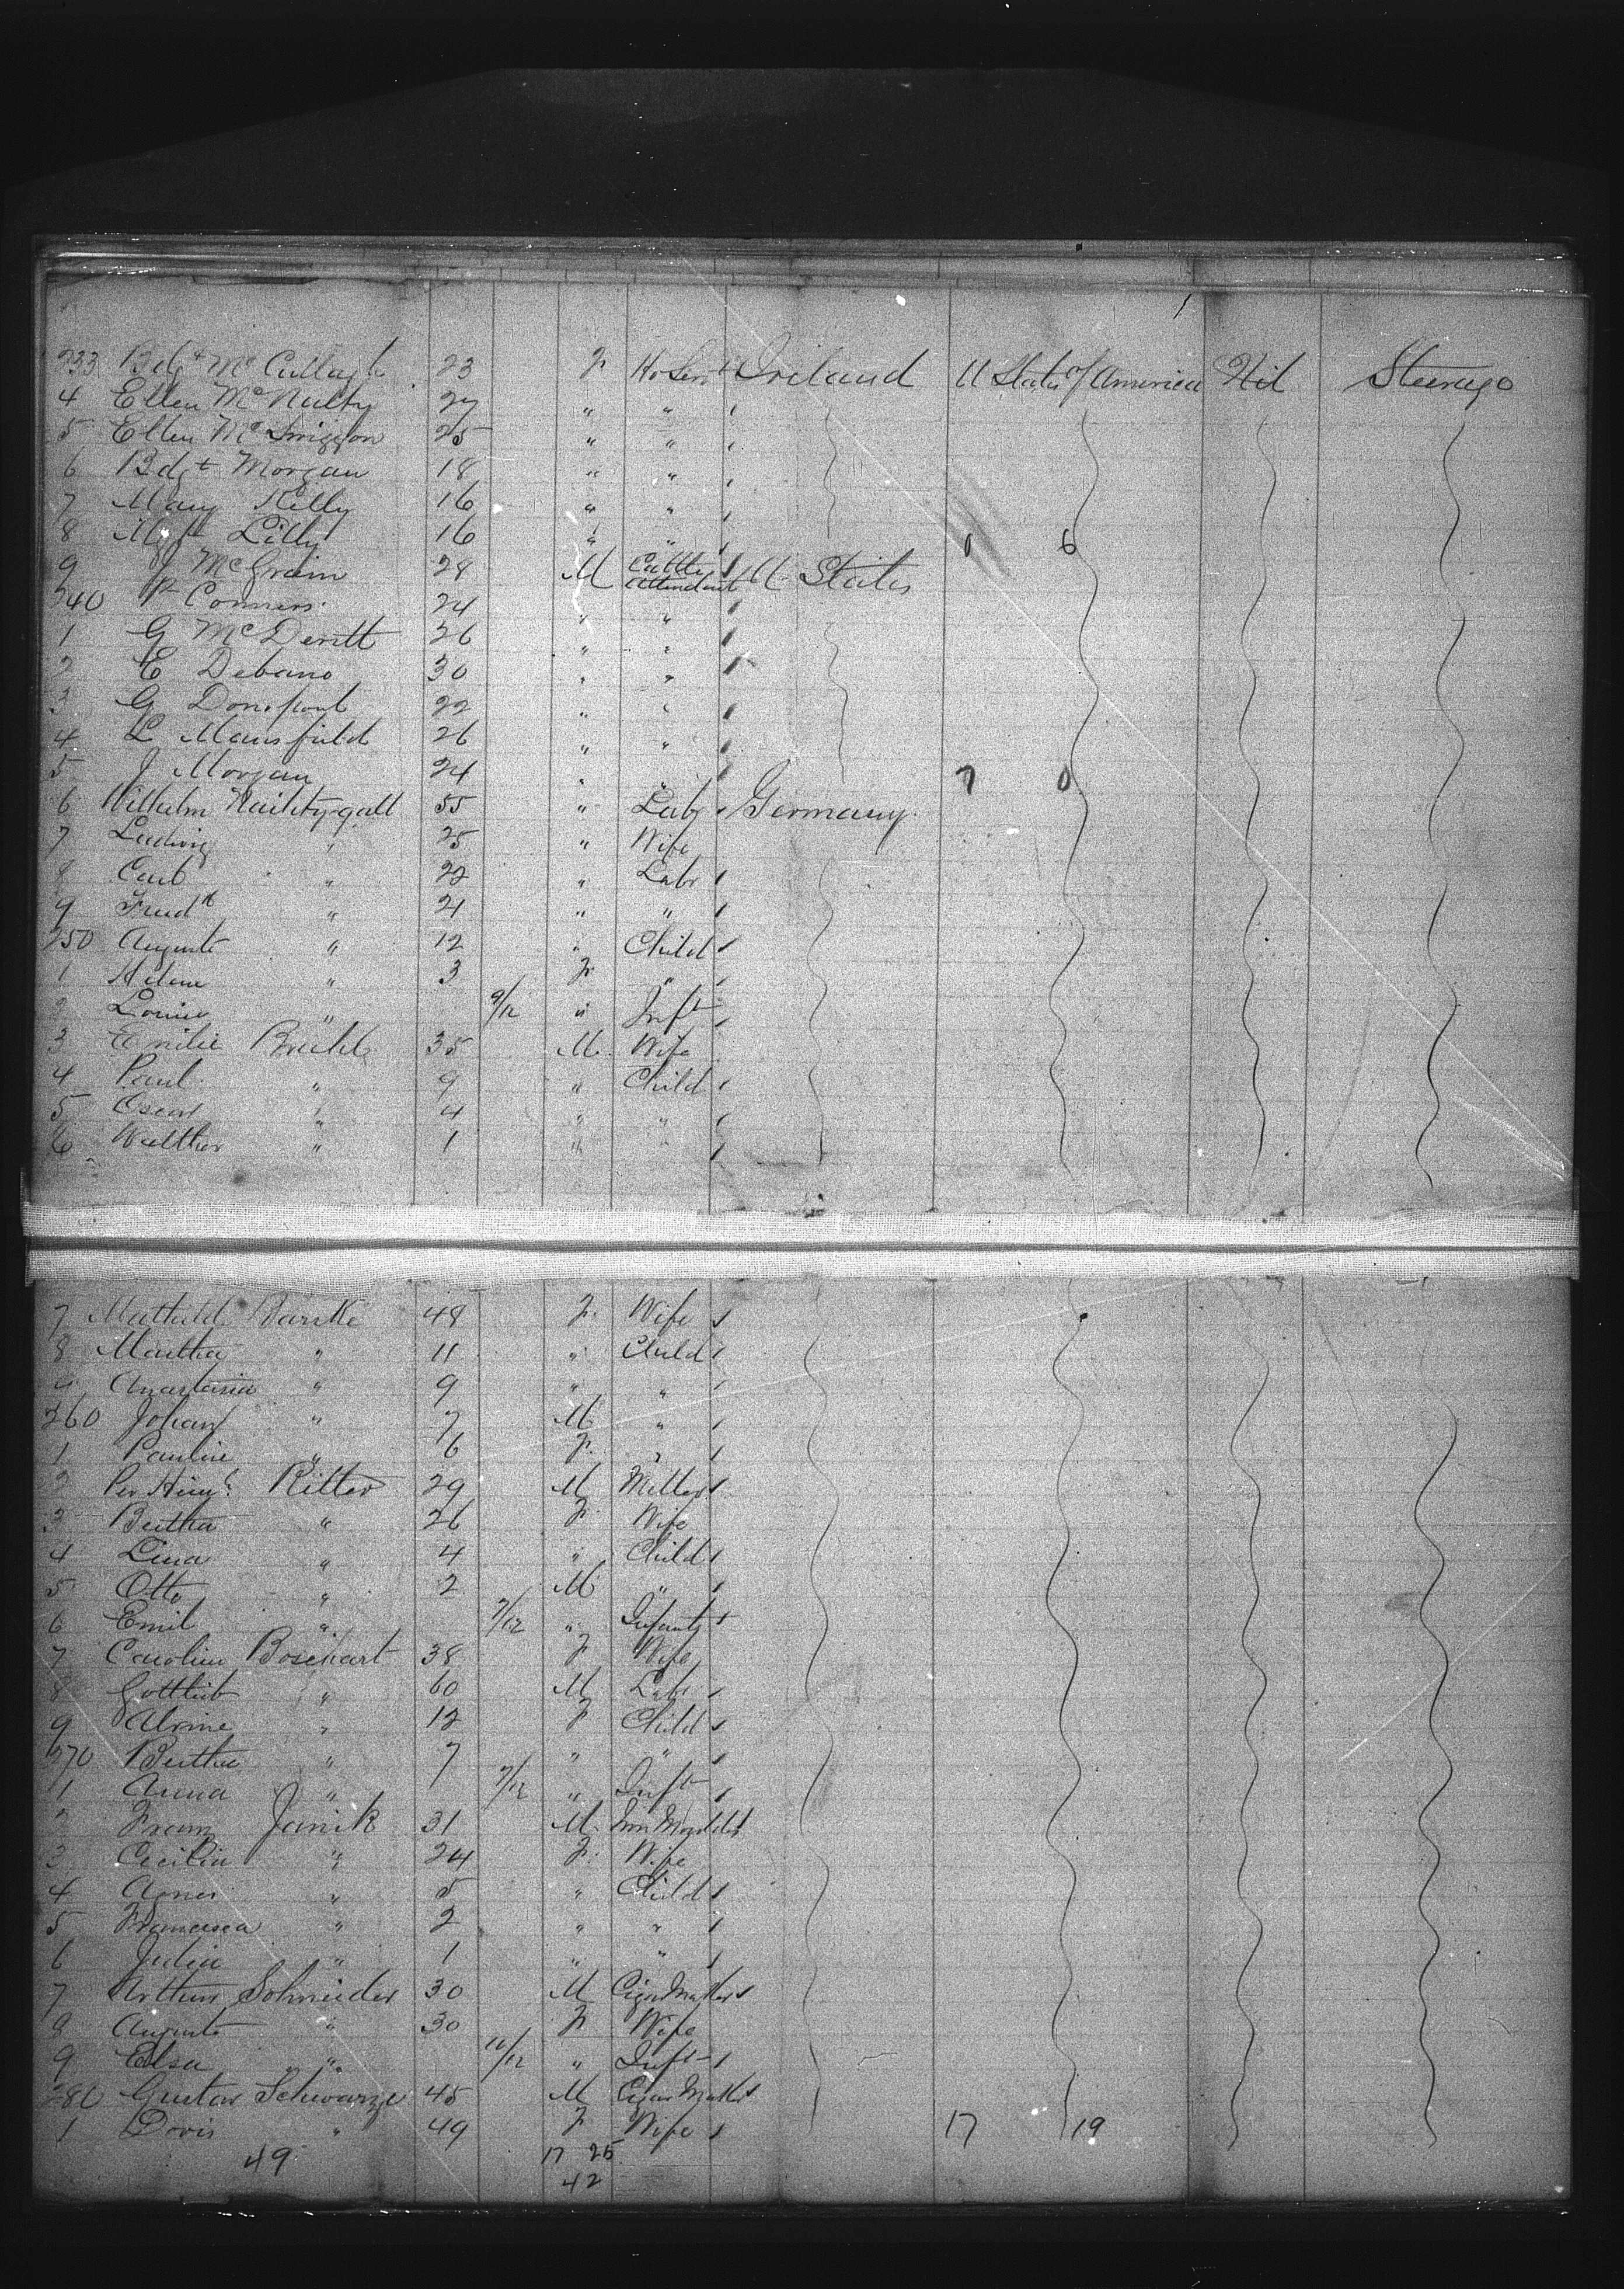 233 Bdgt McCullagh 23 F Ho Servt Ireland U States of America Nil Steerage
4 Ellen McNulty 27 " " "
5 Ellen McSwiggon 25 " " "
6 Bdgt Morgan 18 " " "
7 Mary Kelly 16 " " "
8 Mgt Lilly 16 " " " 0 6
9 J McGrain 28 M Cattle Attendant U States
240 P Connors 24 " "
1 G McDevitt 26 " "
2 E Debano 30 " "
3 G 22 " "
4 L Mansfield 26 " "
5 J Morgan 24 " " 7 0
6 Wilhelm 55 " Labr Germany
7 Ludwig " 25 " Wife
8 Carl " 22 " Labr
9 Fredk " 21 " "
250 Auguste " 12 " Child
1 Helene " 3 F "
2 Louise " 9/12 " Inft
3 Emilie 35 M Wife
4 Paul " 9 " Child
5 Oscar " 4 " "
6 Walther " 1 " "
7 Mathilde 48 F Wife
8 Martha " 11 " Child
9 Anastasia " 9 " "
260 Johan " 7 M "
1 Pauline " 6 F "
2 Ritter 29 M Miller
3 Bertha " 26 F Wife
4 Lina " 4 " Child
5 Otto " 2 M "
6 Emil " 7/12 " Infant
7 Caroline Bosekart 38 F Wife
8 Gottlieb " 60 M Labr
9 " 12 F Child
270 Bertha " 7 " "
1 Anna " 7/12 " Inft
2 Franz Janik 31 M Iron Moulder
3 Cecilia " 24 F Wife
4 Agnes " 5 " Child
5 Francisca " 2 " "
6 Julia " 1 " "
7 Arthur Schneider 30 M Cigar Maker
8 Auguste " 30 F Wife
9 Elsa " 11/12 " Inft
280 Gustav Schwarze 45 M Cigar Maker
1 Doris " 49 F Wife 17 19
49 17 25
42